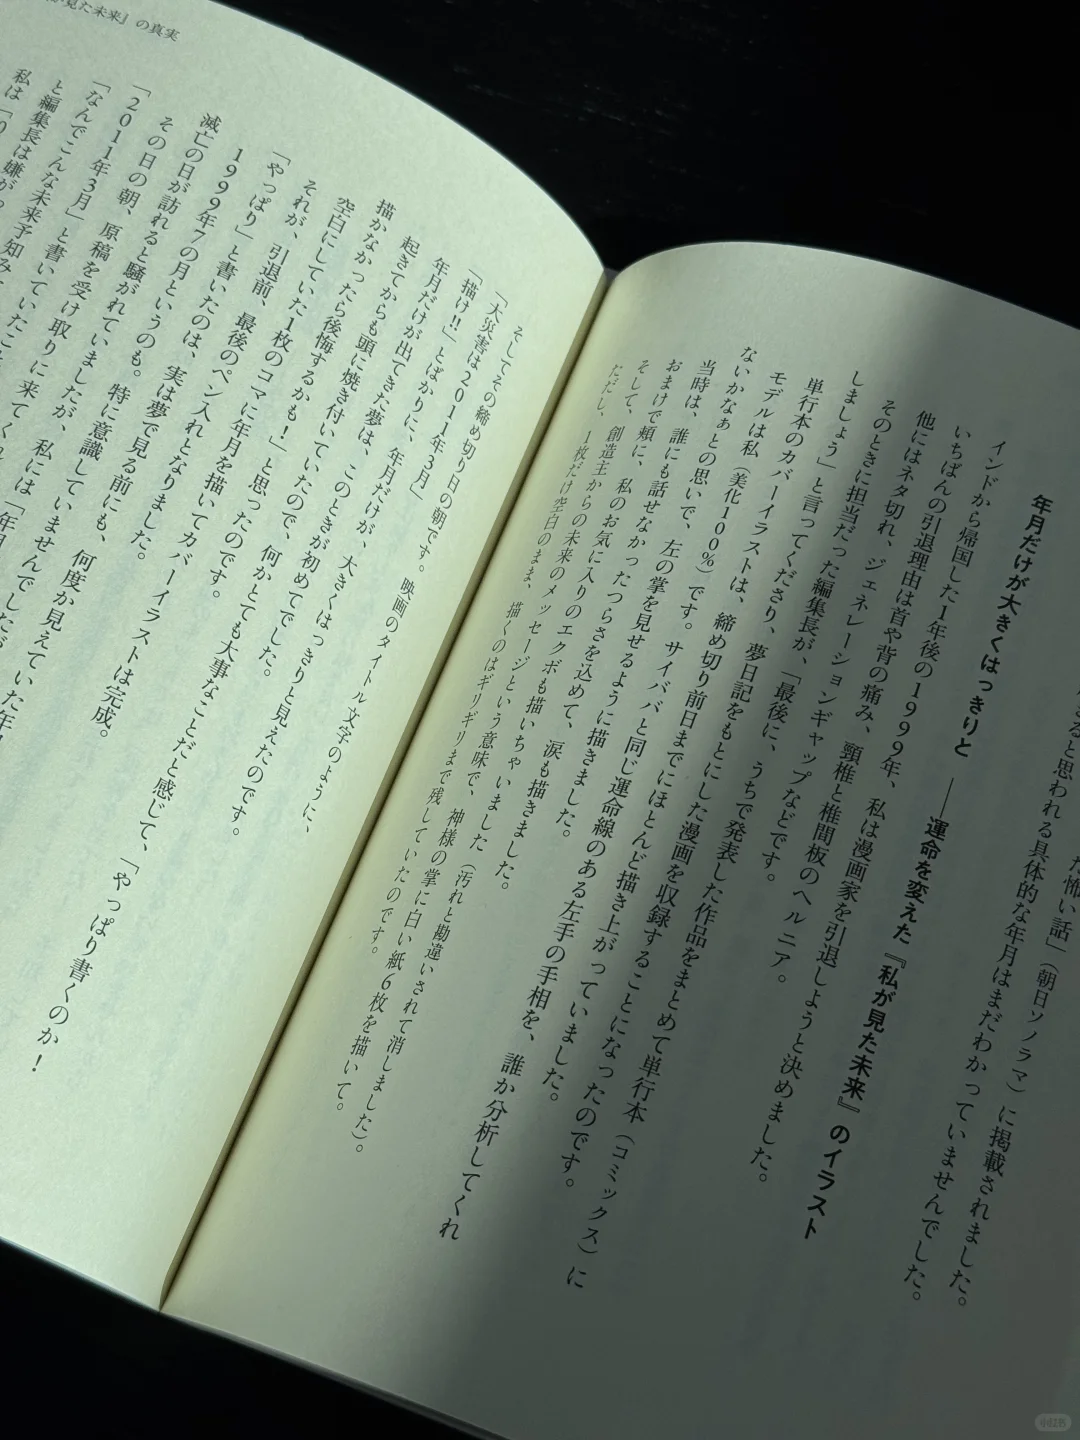 た怖い話」（朝日ソノラマ）に掲載されました。
きると思われる具体的な年月はまだわかっていませんでした。
年月だけが大きくはっきりと ――運命を変えた『私が見た未来』のイラスト
インドから帰国した1年後の1999年、私は漫画家を引退しようと決めました。
いちばんの引退理由は首や背の痛み、頸椎と椎間板のヘルニア。
他にはネタ切れ、ジェネレーションギャップなどです。
そのときに担当だった編集長が、「最後に、うちで発表した作品をまとめて単行本（コミックス）に
しましょう」と言ってくださり、夢日記をもとにした漫画を収録することになったのです。
単行本のカバーイラストは、締め切り前日までにほとんど描き上がっていました。
モデルは私（美化100％）です。サイババと同じ運命線のある左手の手相を、誰か分析してくれ
ないかなぁとの思いで、左の掌を見せるように描きました。
当時は、誰にも話せなかったつらさを込めて、涙も描きました。
おまけで頬に、私のお気に入りのエクボも描いちゃいました（汚れと勘違いされて消しました）。
そして、創造主からの未来のメッセージという意味で、神様の掌に白い紙6枚を描いて。
ただし、1枚だけ空白のまま、描くのはギリギリまで残していたのです。
見た未来』の真実
そしてその締め切り日の朝です。映画のタイトル文字のように、
「大災害は2011年3月」
「描け!!」とばかりに、年月だけが、大きくはっきりと見えたのです。
年月だけが出てきた夢は、このときが初めてでした。
起きてからも頭に焼き付いていたので、何かとても大事なことだと感じて、「やっぱり書くのか！
描かなかったら後悔するかも！」と思ったのです。
空白にしていた1枚のコマに年月を描いてカバーイラストは完成。
それが、引退前、最後のペン入れとなりました。
「やっぱり」と書いたのは、実は夢で見る前にも、何度か見えていた年
1999年7の月というのも。特に意識していませんでした
滅亡の日が訪れると騒がれていましたが、私には「年月
その日の朝、原稿を受け取りに来てく
「2011年3月」と書いていたこと
「なんでこんな未来予知み
と編集長は嫌が
私は「